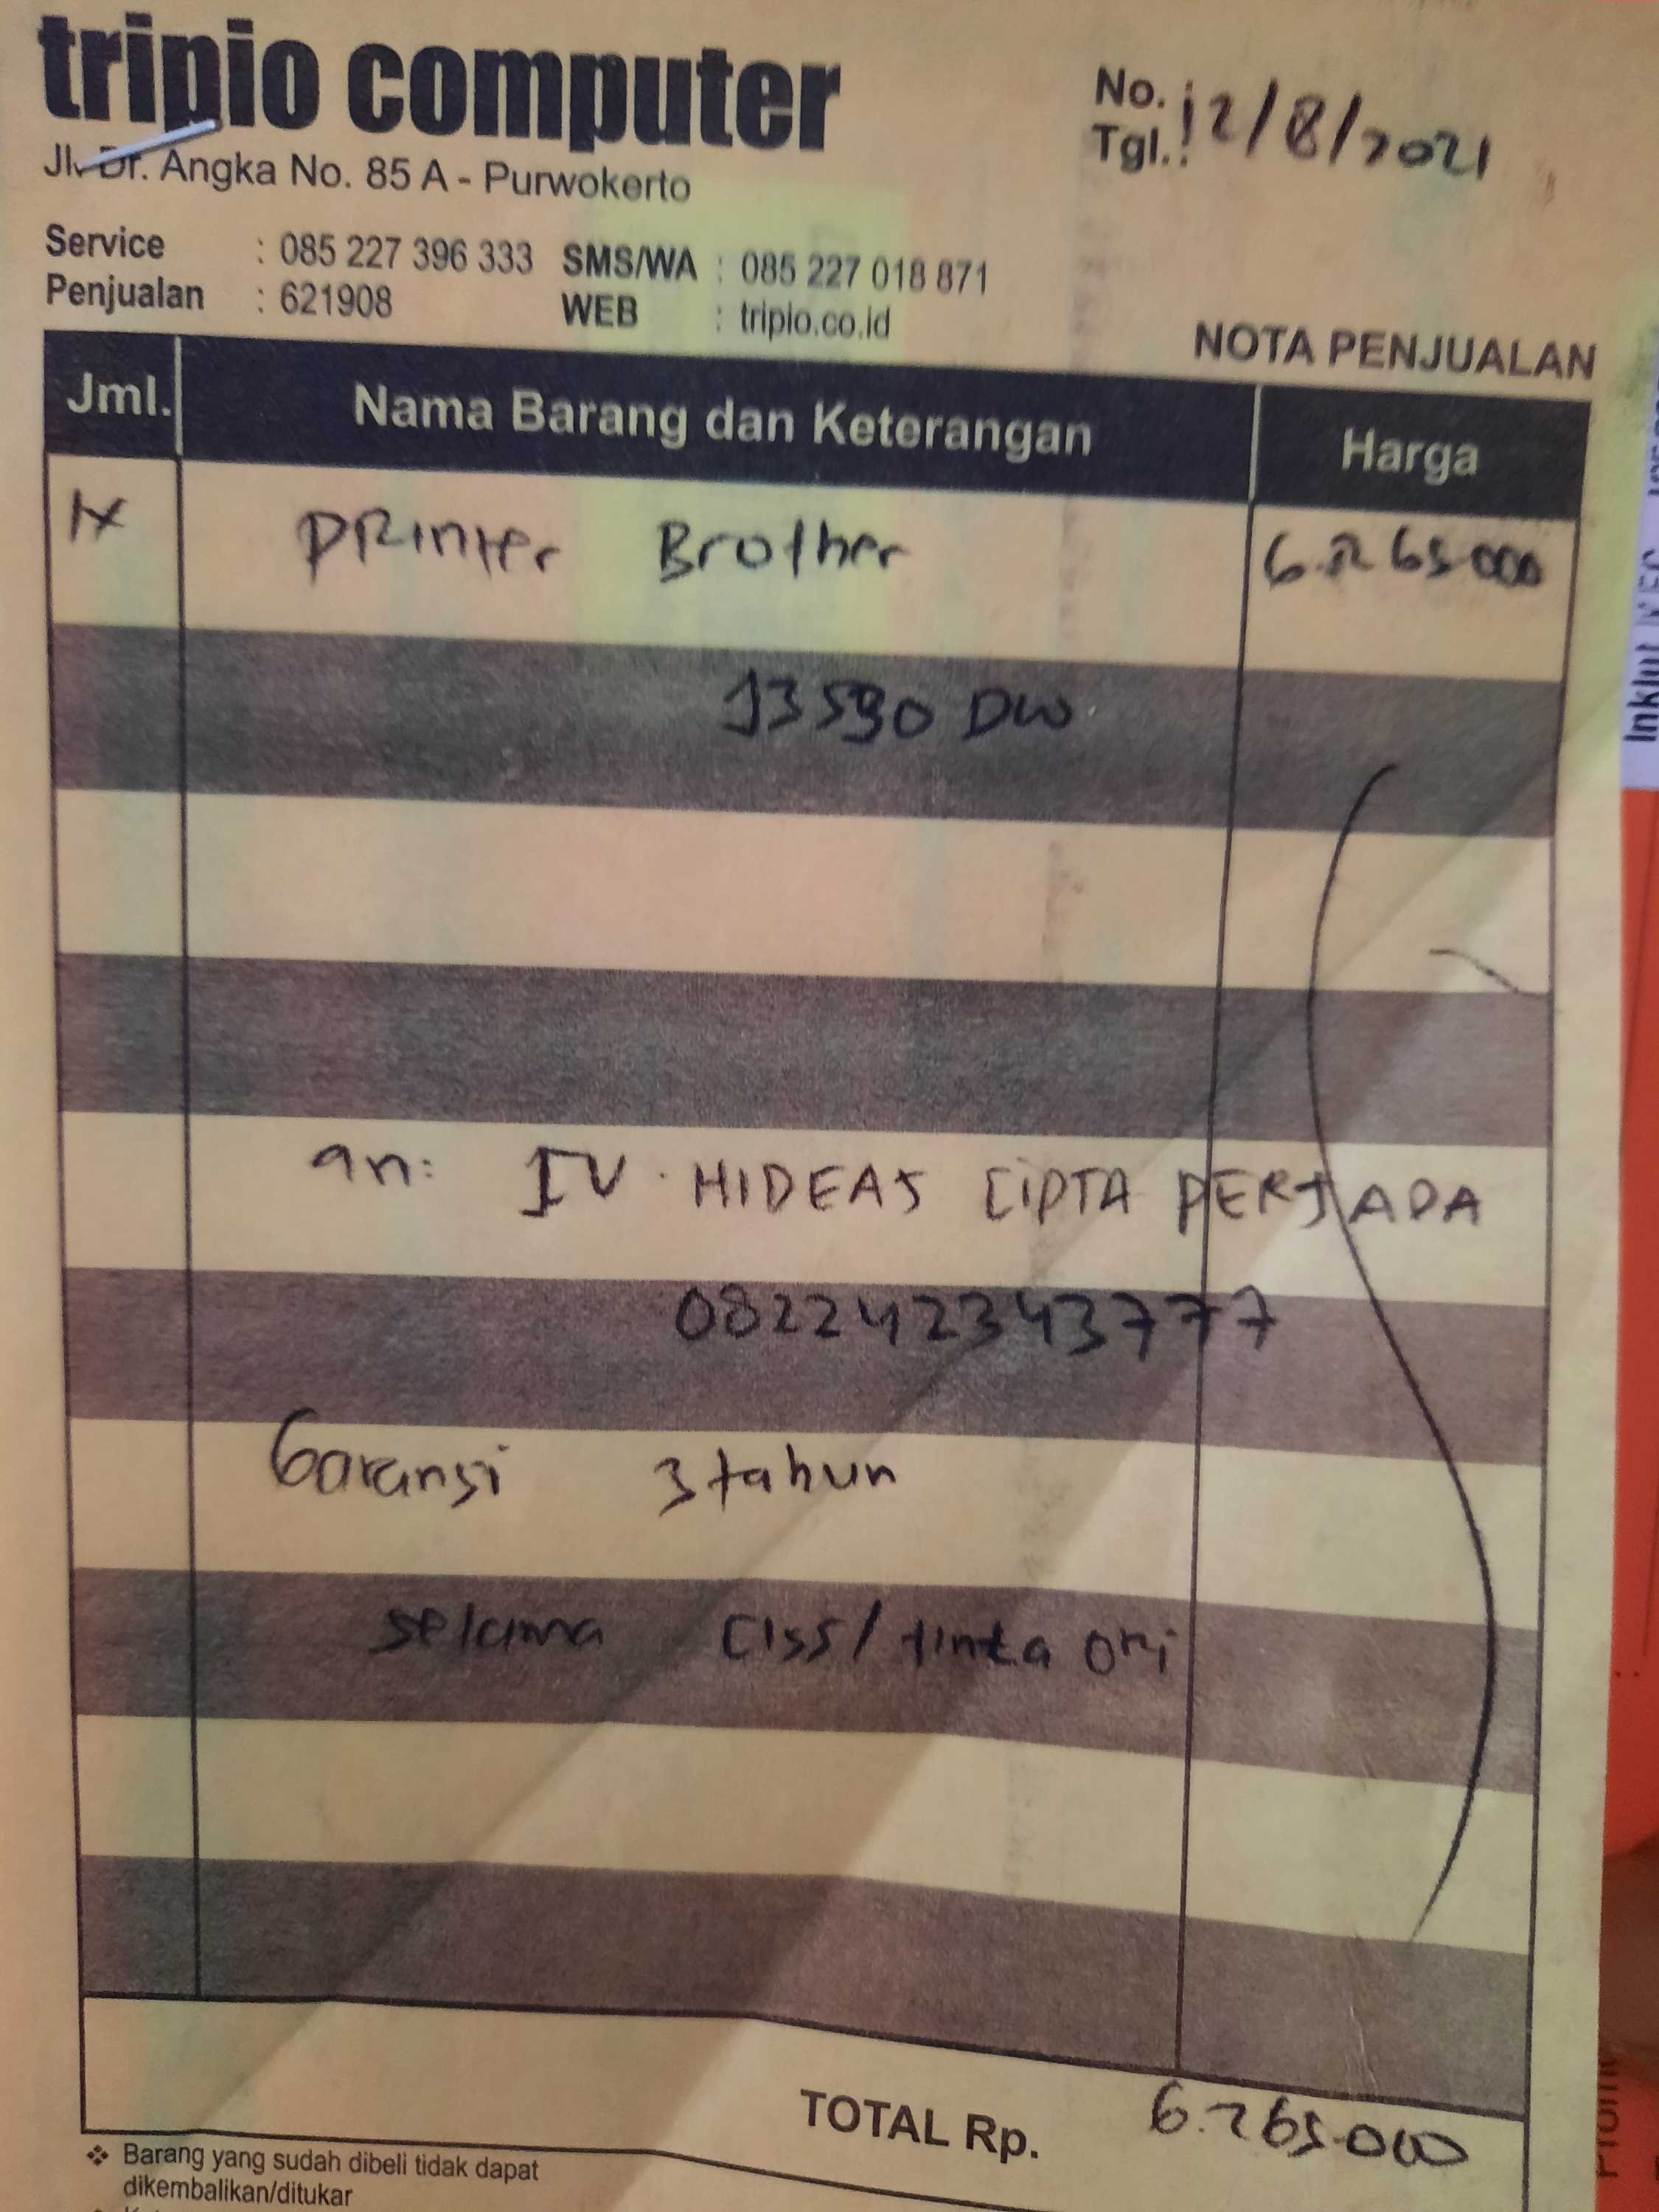 tripio computer
Jl. Dr. Angka No. 85 A - Purwokerto
No. :
Tgl. : 12/8/2021
Service : 085 227 396 333 SMS/WA : 085 227 018 871
Penjualan : 621908 WEB : tripio.co.id
NOTA PENJUALAN
Jml. Nama Barang dan Keterangan Harga
1x PRinter Brother 6.265.000
J3530 DW
an: IV. HIDEAS CIPTA PERSADA
082242343777
Garansi 3 tahun
selama CISS/tinta ori
TOTAL Rp. 6.265.000
❖ Barang yang sudah dibeli tidak dapat
dikembalikan/ditukar
Inklut